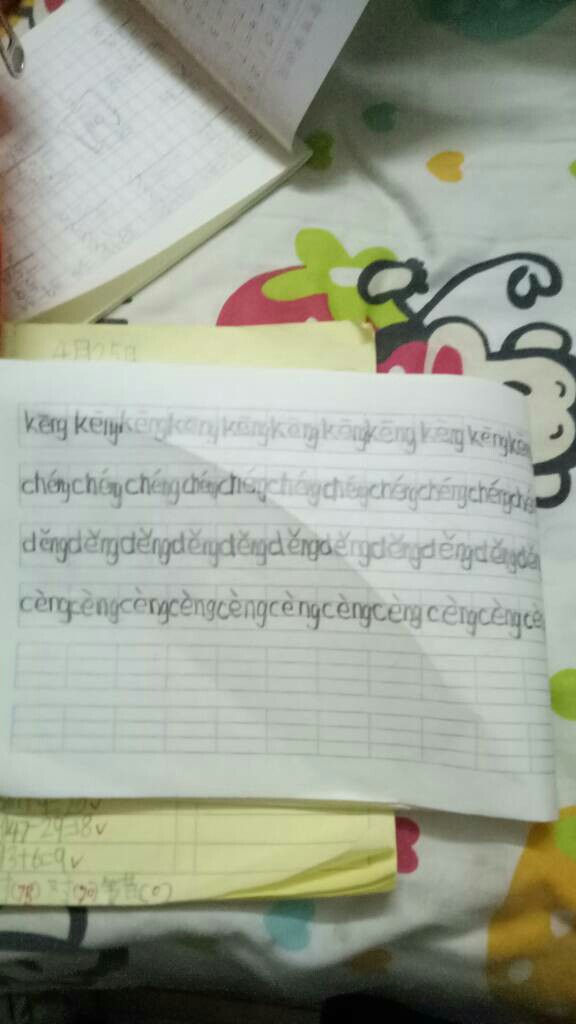 4月25日
kēng kēng kēng kēng kēng kēng kēng kēng kēng kēng kēng
chéng chéng chéng chéng chéng chéng chéng chéng chéng chéng ché
děng děng děng děng děng děng děng děng děng děng děn
cèng cèng cèng cèng cèng cèng cèng cèng cèng cèng cè
47-29=18✓
3+6=9✓